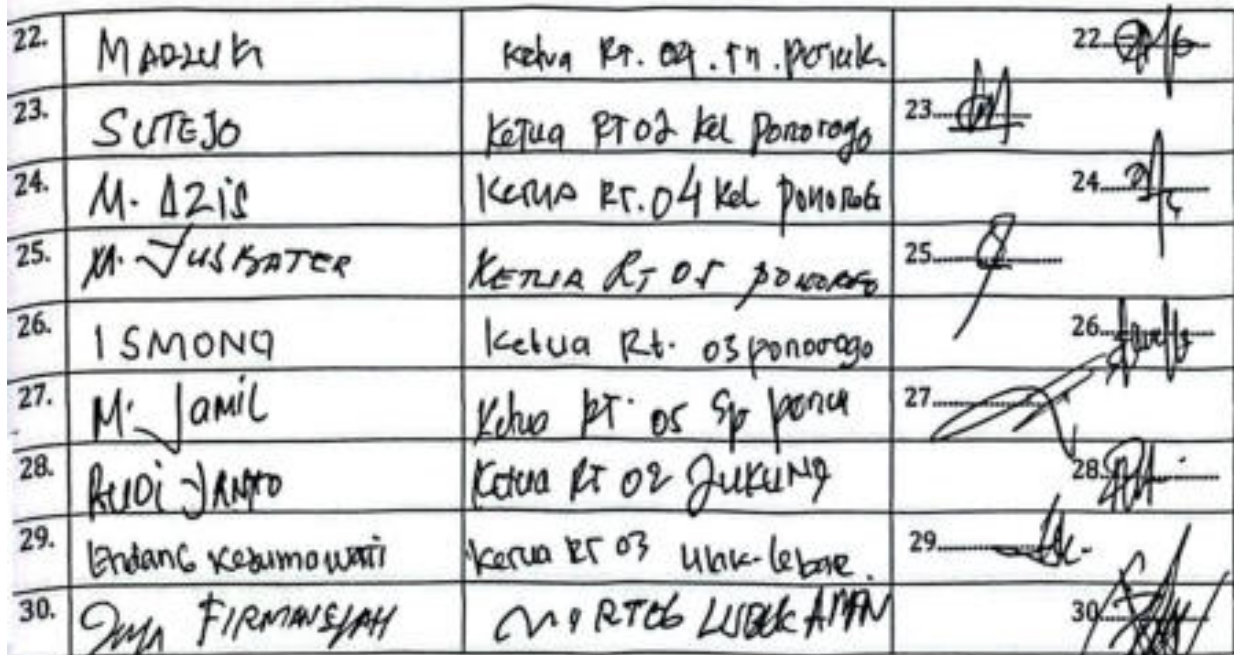 22. MARZUKI Ketua Rt. 09. Tn. Periuk. 22
23. SUTEJO Ketua RT 02 Kel Ponorogo 23
24. M. AZIS Ketua Rt. 04 Kel Ponorogo 24
25. M. KETUA RT 05 PONOROGO 25
26. ISMONO Ketua Rt. 03 ponorogo 26
27. M. Jamil Ketua RT. 05 Sp 27
28. RUDI Ketua RT 02 JUKUNG 28
29. Endang Kesumowati Ketua RT 03 Ulak-lebar. 29
30. FIRMANSJAH RT06 LUBUK AMAN 30